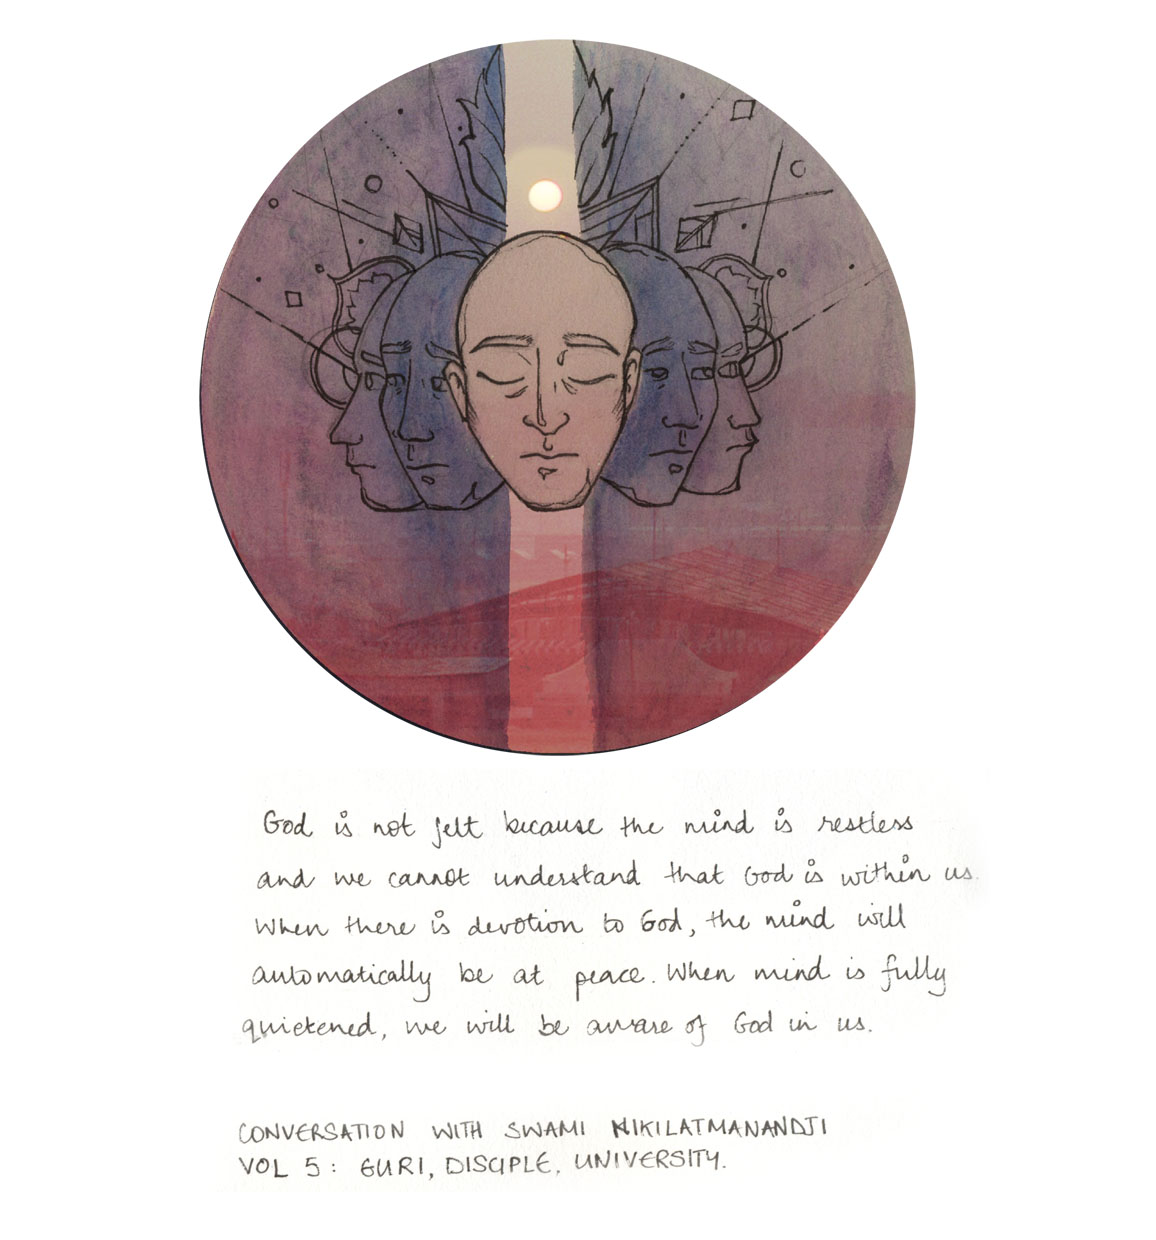 God is not felt because the mind is restless
and we cannot understand that God is within us.
When there is devotion to God, the mind will
automatically be at peace. When mind is fully
quietened, we will be aware of God in us.
CONVERSATION WITH SWAMI NIKILATMANANDJI
VOL 5: GURI, DISCIPLE, UNIVERSITY.